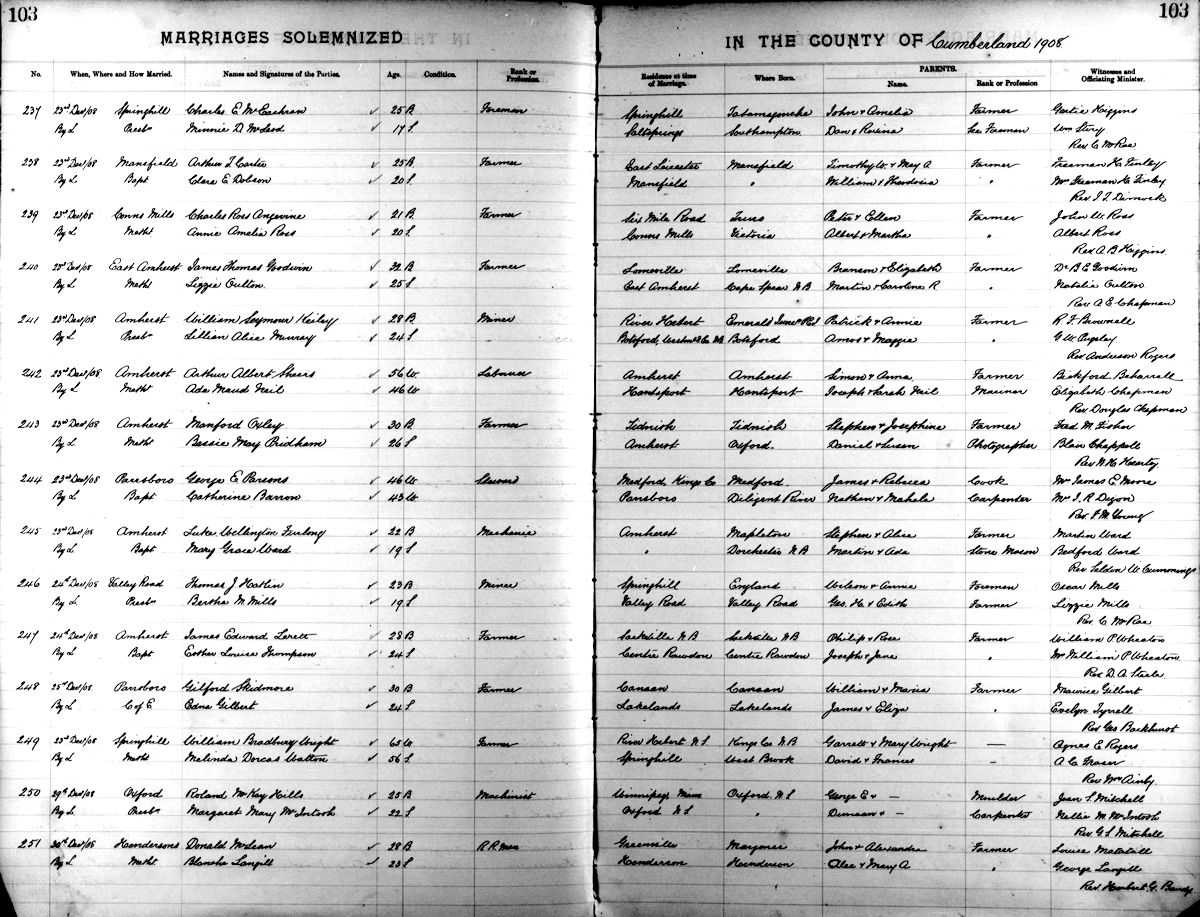 103 103
MARRIAGES SOLEMNIZED IN THE COUNTY OF Cumberland 1908
PARENTS.
No. When, Where and How Married. Names and Signatures of the Parties. Age. Condition. Rank or Profession. Residence at time of Marriage. Where Born. Name. Rank or Profession Witnesses and Officiating Minister.
237 23rd Dec/08 Springhill Charles E McEachran ✓ 25 B Foreman Springhill Tatamagouche John & Amelia Farmer Gertie Higgins
By L Presbn Minnie D McLeod ✓ 17 S Saltsprings Southampton Dan & Rosina See Foreman Wm Story
Rev C McRae
238 23rd Dec/08 Mansfield Arthur T Carter ✓ 25 B Farmer East Leicester Mansfield Timothy W & May A Farmer Freeman H Finley
By L Bapt Clara E Dobson ✓ 20 S Mansfield " William & Theodosia " Mrs Freeman H Finley
Rev J T Dimock
239 23rd Dec/08 Conns Mills Charles Ross Angevine ✓ 21 B Farmer Six Mile Road Truro Peter & Ellen Farmer John W Ross
By L Metht Annie Amelia Ross ✓ 20 S Conns Mills Victoria Albert & Martha " Albert Ross
Rev A B Higgins
240 23rd Dec/08 East Amherst James Thomas Goodwin ✓ 32 B Farmer Someville Someville Branson & Elizabeth Farmer Dr B E Goodwin
By L Metht Lizzie Oulton ✓ 25 S East Amherst Cape Spear N B Martin & Caroline R " Natalie Oulton
Rev A E Chapman
241 23rd Dec/08 Amherst William Seymour Keiley ✓ 28 B Miner River Hebert Emerald P E I Patrick & Annie Farmer R F Brownell
By L Presbn Lillian Alice Murray ✓ 24 S Botsford, Botsford Amos & Maggie " G W
Rev Anderson Rogers
242 23rd Dec/08 Amherst Arthur Albert Shears ✓ 56 W Laborer Amherst Amherst Simon & Anna Farmer Bickford
By L Metht Ada Maud Neil ✓ 46 W Hantsport Hantsport Joseph & Sarah Neil Mariner Elizabeth Chapman
Rev Douglas Chapman
243 23rd Dec/08 Amherst Manford Oxley ✓ 30 B Farmer Tidnish Tidnish Stephen & Josephine Farmer Fred M Fisher
By L Metht Bessie May Pridham ✓ 26 S Amherst Oxford Daniel & Susan Photographer Blair Chappell
Rev
244 23rd Dec/08 Parrsboro George E Parsons ✓ 46 W Steward Medford Kings Co Medford James & Rebecca Cook Mrs James E Moore
By L Bapt Catherine Barron ✓ 43 W Parrsboro Diligent River Nathan & Mahala Carpender Mr J R
Rev F M Young
245 23rd Dec/08 Amherst Luke Wellington Furlong ✓ 22 B Mechanic Amherst Mapleton Stephen & Alice Farmer Martin Ward
By L Bapt Mary Grace Ward ✓ 19 S " Dorchester N B Martin & Ada Stone Mason Bedford Ward
Rev Seldon W Cummings
246 24th Dec/08 Valley Road Thomas J Hatlin ✓ 23 B Miner Springhill England Wilson & Annie Foreman Oscar Mills
By L Presbn Bertha M Mills ✓ 19 S Valley Road Valley Road Geo. H. & Edith Farmer Lizzie Mills
Rev C McRae
247 24th Dec/08 Amherst James Edward ✓ 28 B Farmer Sackville N B Sackville N B Philip & Rose Farmer William P Wheaton
By L Bapt Esther Louise Thompson ✓ 24 S Centre Rawdon Centre Rawdon Joseph & Jane " Mrs William P Wheaton
Rev D. A. Steele
248 25th Dec/08 Parrsboro Gilford Skidmore ✓ 30 B Farmer Canaan Canaan William & Maria Farmer Maurice Gilbert
By L C of E Edna Gilbert ✓ 24 S Lakelands Lakelands James & Eliza " Evelyn Tyrrell
Rev Geo Backhurst
249 25th Dec/08 Springhill William Bradbury Wright ✓ 65 W Farmer River Hebert N S Kings Co N B Garrett & Mary Wright — Agnes E Rogers
By L Metht Malinda Dorcas Walton ✓ 56 S Springhill West Brook David & Frances — A C Fraser
Rev Wm Ainley
250 29th Dec/08 Oxford Roland McKay Hills ✓ 25 B Machinist Winnipeg Mass Oxford N S George E & — Moulder Jean S Mitchell
By L Presbn Margaret Mary McIntosh ✓ 22 S Oxford N S " Duncan & — Carpenter Nellie M McIntosh
Rev G L Mitchell
251 30th Dec/08 Hendersons Donald McLean ✓ 28 B R R Man Greenville Margaree John & Alexandra Farmer Louise Matatall
By L Metht Blanche Langill ✓ 23 S Henderson Henderson Alec & Mary A " George Langill
Rev. Herbert G.